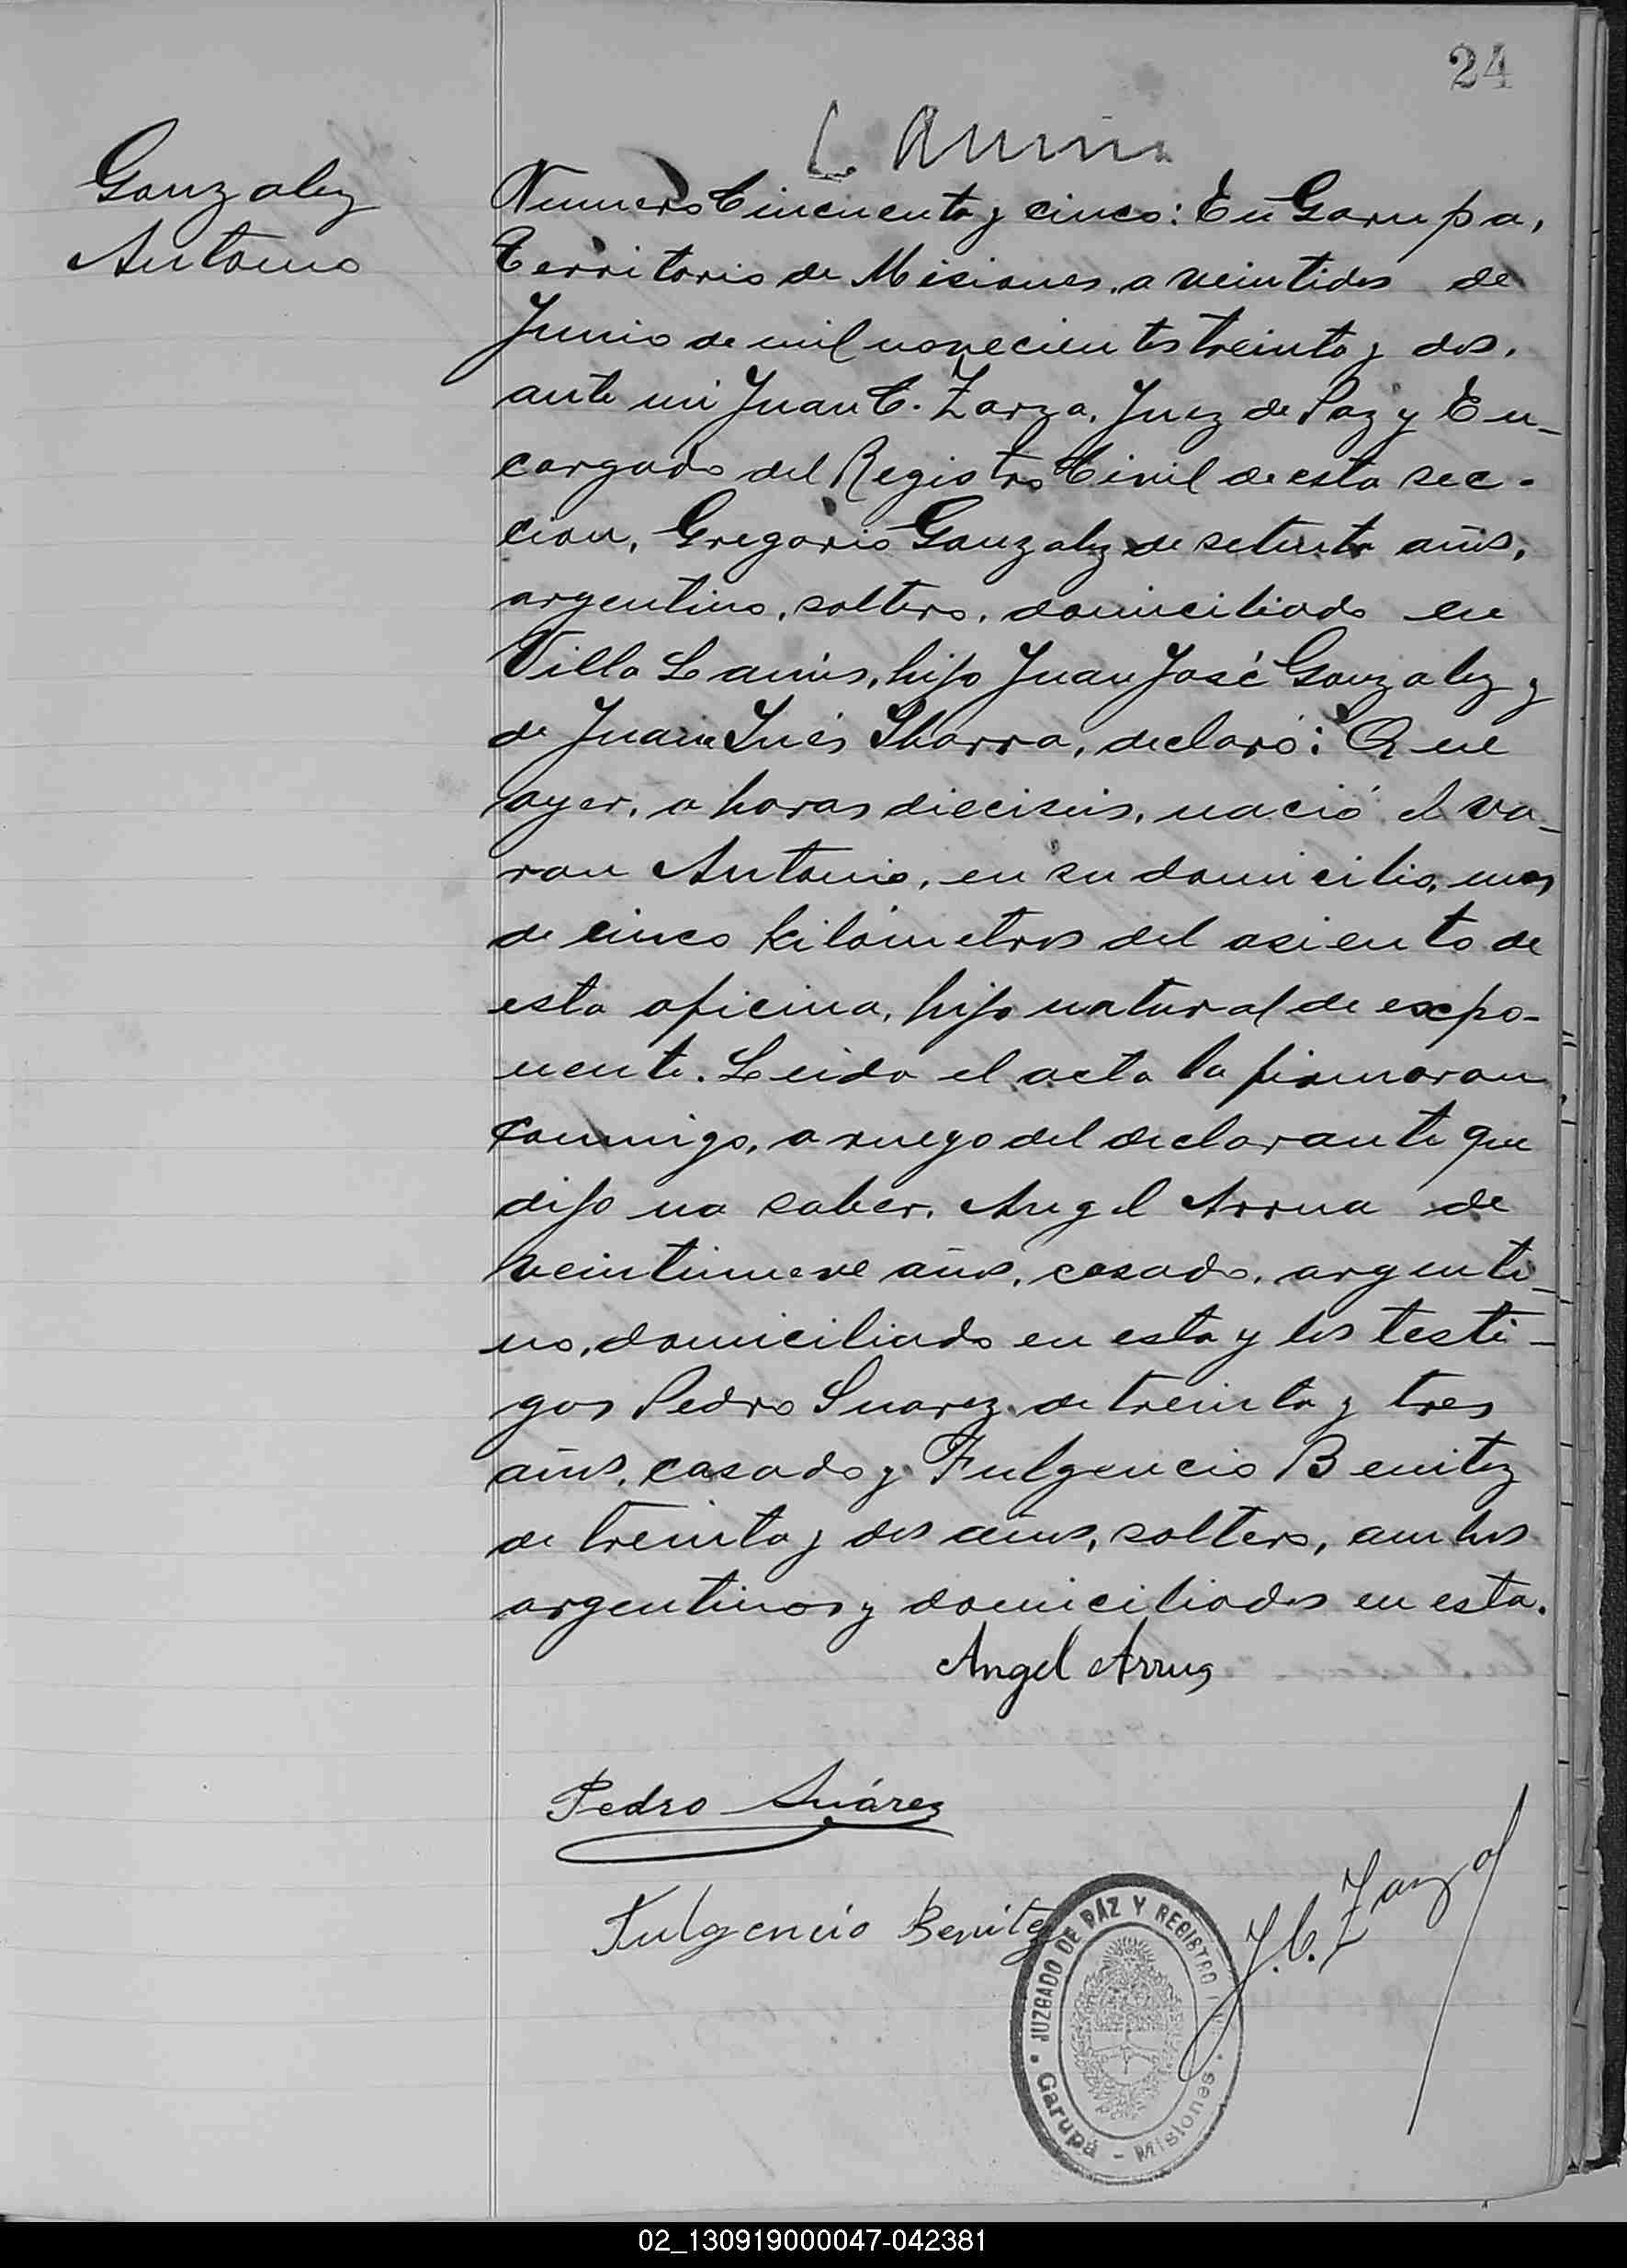 24
Gonzalez
Antonio
Numero Cincuenta y cinco: En Garupa,
Territorio de Misiones, a veintidos de
Junio de mil novecientos treinta y dos,
ante mi Juan C. Zarza, Juez de Paz y En-
cargado del Registro Civil de esta sec-
cion, Gregorio Gonzalez de setenta años,
argentino, soltero, domiciliado en
Villa Lanús, hijo Juan José Gonzalez y
de Juana Inés Ibarra, declaró: Que
ayer, a horas dieciseis, nació el va-
ron Antonio, en su domicilio, mas
de cinco kilómetros del asiento de
esta oficina, hijo natural de expo-
nente. Leida el acta la firmaron
conmigo, a ruego del declarante que
dijo no saber, Angel Arrua de
veintinueve años, casado, argenti-
no, domiciliado en esta y los testi-
gos Pedro Suarez de treinta y tres
años, casado y Fulgencio Benitez
de treinta y dos años, soltero, ambos
argentinos y domiciliados en esta.
Angel Arrua
Pedro Suárez
Fulgencio Benitez
J. C. Zarza
JUZGADO DE PAZ Y REGISTRO
Garupá - Misiones
02_130919000047-042381